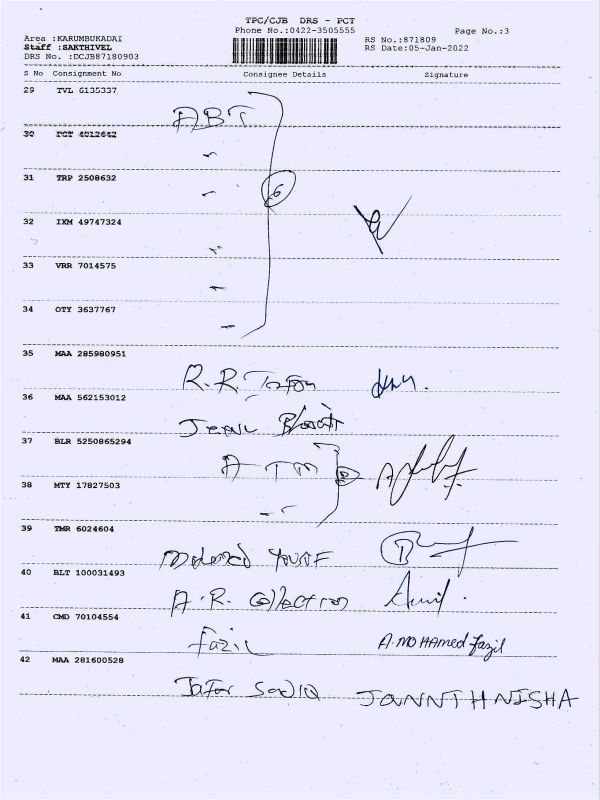 TPC/CJB DRS - PCT
Phone No.:0422-3505555
Page No.:3
Area :KARUMBUKADAI
RS No.:871809
Staff :SAKTHIVEL
RS Date:05-Jan-2022
DRS No. :DCJB87180903
S No Consignment No Consignee Details Signature
29 TVL 6135337
ABT
30 PCT 4012642
31 TRP 2508632
6
32 IXM 49747324
33 VRR 7014575
34 OTY 3637767
35 MAA 285980951
R.R
36 MAA 562153012
37 BLR 5250865294
ATM
38 MTY 17827503
39 TMR 6024604
40 BLT 100031493
A.R. Collection
41 CMD 70104554
Fazil A.MOHAMed fazil
42 MAA 281600528
Jafar Sadiq JANNTHNISHA